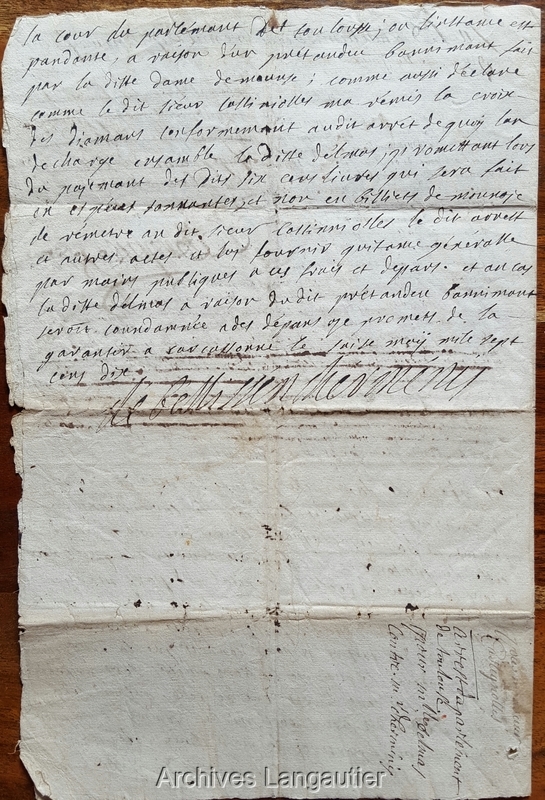 la cour du parlémant de toulouse, ou linstance est
pandante, a raison du prétandeu bannimant fait
par la ditte dame demouse; comme aussi déclare
comme le dit sieur castiniolles ma rémis la croix
dés diamans conformemant audit arrét de quoi lan
décharge ensamble la ditte délmas; promettant lors
du payemant des dits six cens livres qui sera fait
en espéces sonnantes, et non en billiets de monnoje
de remetre au dit sieur castinniolles le dit arrest
et autres actes et luy fournir quitance généralle
par mains publiques a ces frais et dépans. et au cas
la ditte délmas a raison du dit prétandeu bannimant
seroit coundamnée a des dépans je promets de la
garantir a carcassonne le saise maij mile sept
cens dix
arrest du parlement
de toulouse
pour mlle delmas
Contre mr
Archives Langautier